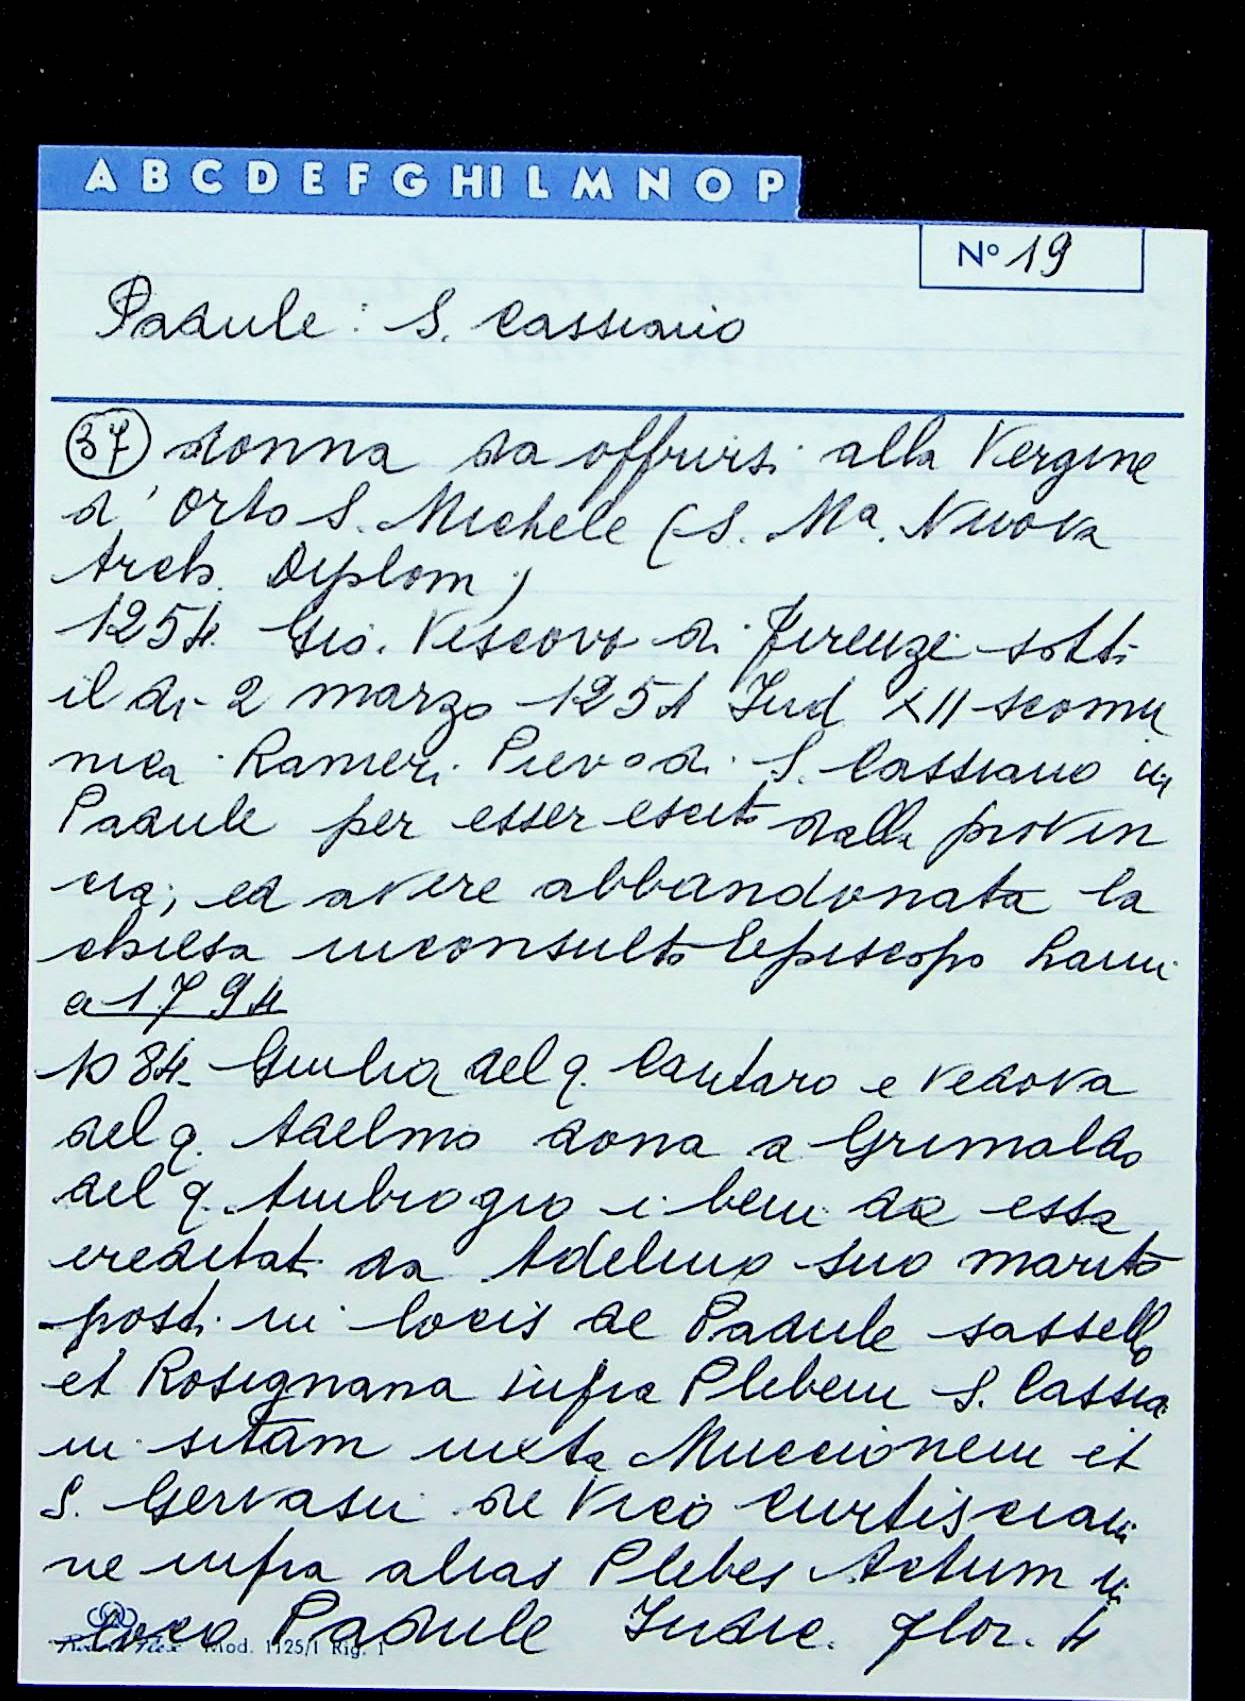 A B C D E F G H I L M N O P
N° 19
Padule: S. Cassiano
37 donna da offrirsi alla Vergine
d' Orto S. Michele (S. Ma. Nuova
Arch. Diplom)
1254. Gio. Vescovo di Firenze sotto
il di 2 marzo 1254 Ind XII scomu
nica Ranieri Pievo di S. Cassiano in
Padule per esser escito dalla provin
cia, ed avere abbandonata la
chiesa inconsulto Episcopo Lami
a 1794
1084. Giulia del q. Cantaro e vedova
del q. Adelmo dona a Grimaldo
del q. Ambrogio i beni da essa
ereditati da Adelmo suo marito
posti in locis de Padule sassello
et Rosignana infra Plebem S. Cassia
ni sitam iuxta Muccionem et
S. Gervasii de Vico
ne infra alias Plebes Actum in
loco Padule Iudic. Flor. 4
Mod. 1125/1 Rig. 1